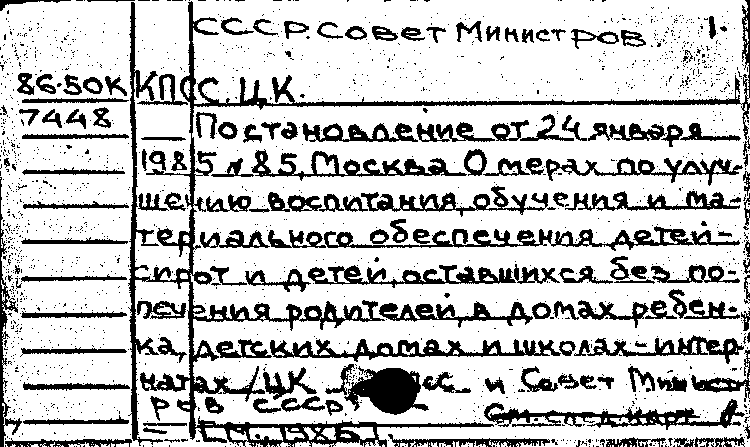 СССР. Совет Министров. 1.
86-50К КПСС. ЦК.
7448 Постановление от 24 января
1985 №85, Москва О мерах по улуч-
шению воспитания, обучения и ма-
териального обеспечения детей-
сирот и детей, оставшихся без по-
печения родителей, в домах ребен-
ка, детских домах и школах-интер
натах / ЦК и Совет Минист
ров СССР.
См. след. карт.
= [М., 1985].